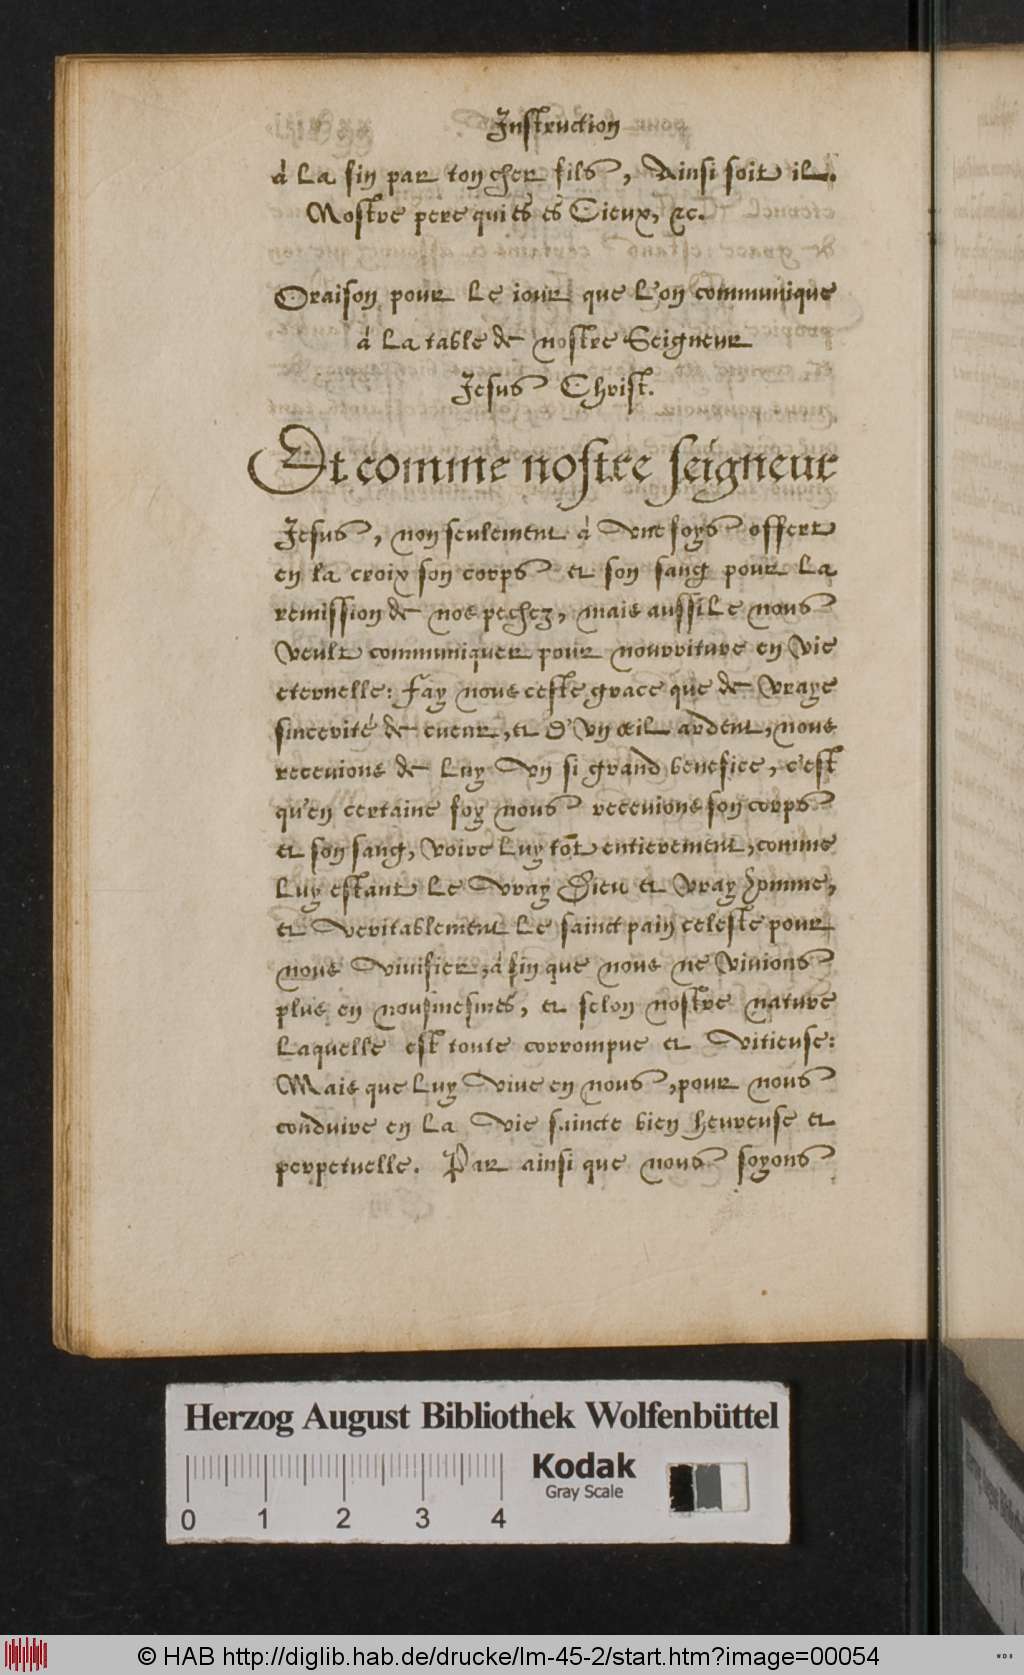 Instruction
à la fin par ton cher fils, Ainsi soit il.
Nostre pere qui és és Cieux, &c.
Oraison pour le iour que l'on communique
à la table de nostre Seigneur
Jesus Christ.
Et comme nostre seigneur
Jesus, non seulement à vne foys offert
en la croix son corps et son sang pour la
remission de nos pechez, mais aussi le nous
veult communiquer pour nourriture en vie
eternelle: Fay nous ceste grace que de vraye
sincerité de cueur, et d'vn œil ardent, nous
receuions de luy vn si grand benefice, c'est
qu'en certaine foy nous receuions son corps
et son sang, voire luy tōt entierement, comme
luy estant le vray Dieu et vray homme,
et veritablement le sainct pain celeste pour
nous viuifier, à fin que nous ne viuions
plus en nousmesmes, et selon nostre nature
laquelle est toute corrompue et vitieuse:
Mais que luy viue en nous, pour nous
conduire en la vie saincte bien heureuse et
perpetuelle. Par ainsi que nous soyons
Herzog August Bibliothek Wolfenbüttel
Kodak
Gray Scale
0 1 2 3 4
© HAB http://diglib.hab.de/drucke/lm-45-2/start.htm?image=00054